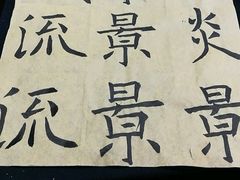 炎景
景景
流流